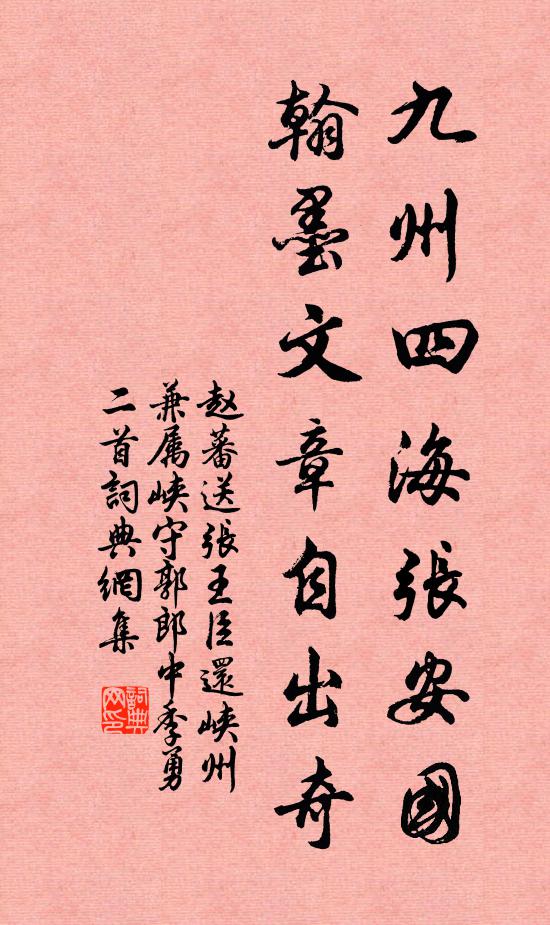 九州四海張安國
翰墨文章自出奇
赵蕃送張王臣還峽州
兼属峽守郭郎中季勇
二首詞典網集
詞典
网印